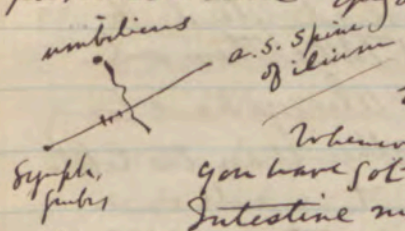 umbilicus
a. s. spine
of ilium
Symph.
pubis
Whenev
you have got
Intestine